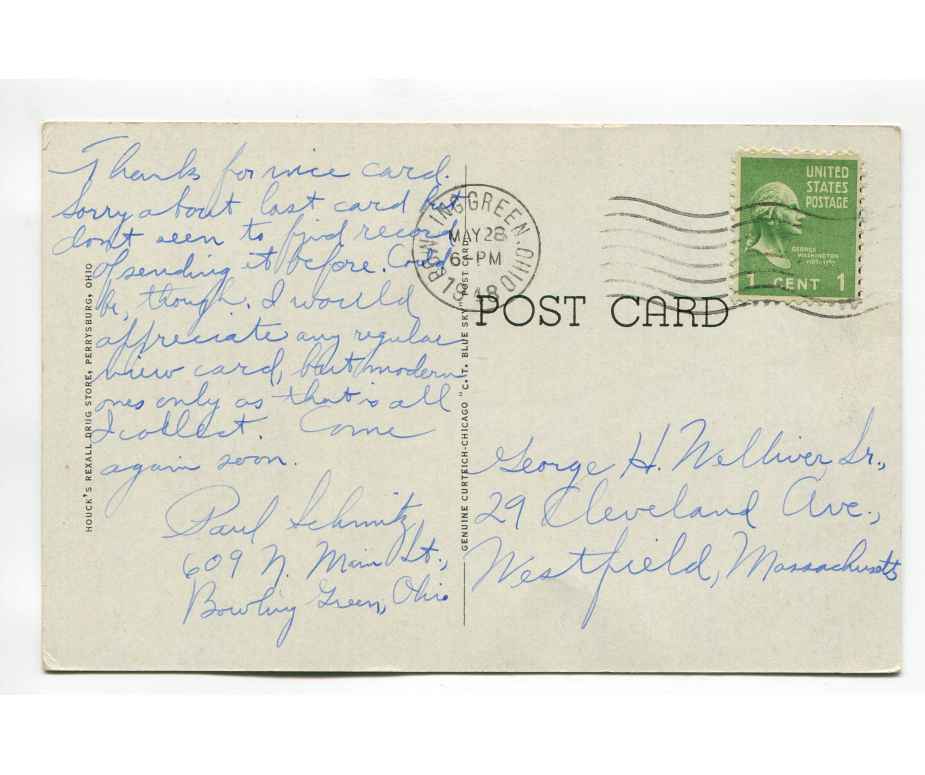 Thanks for nice card.
Sorry about last card but
don't seen to find record
of sending it before. Could
be, though. I would
appreciate any regular
view card, but modern
ones only as that is all
I collect. Come
again soon.
Paul Schmitz
609 N. Main St.,
Bowling Green, Ohio
HOUCK'S REXALL DRUG STORE, PERRYSBURG, OHIO
GENUINE CURTEICH-CHICAGO "C. T. BLUE SKY" POST CARD
BOWLING GREEN, OHIO
MAY 28
6-PM
1948
POST CARD
UNITED
STATES
POSTAGE
GEORGE
WASHINGTON
1 CENT 1
George H. Welliver Sr.,
29 Cleveland Ave.,
Westfield, Massachusetts